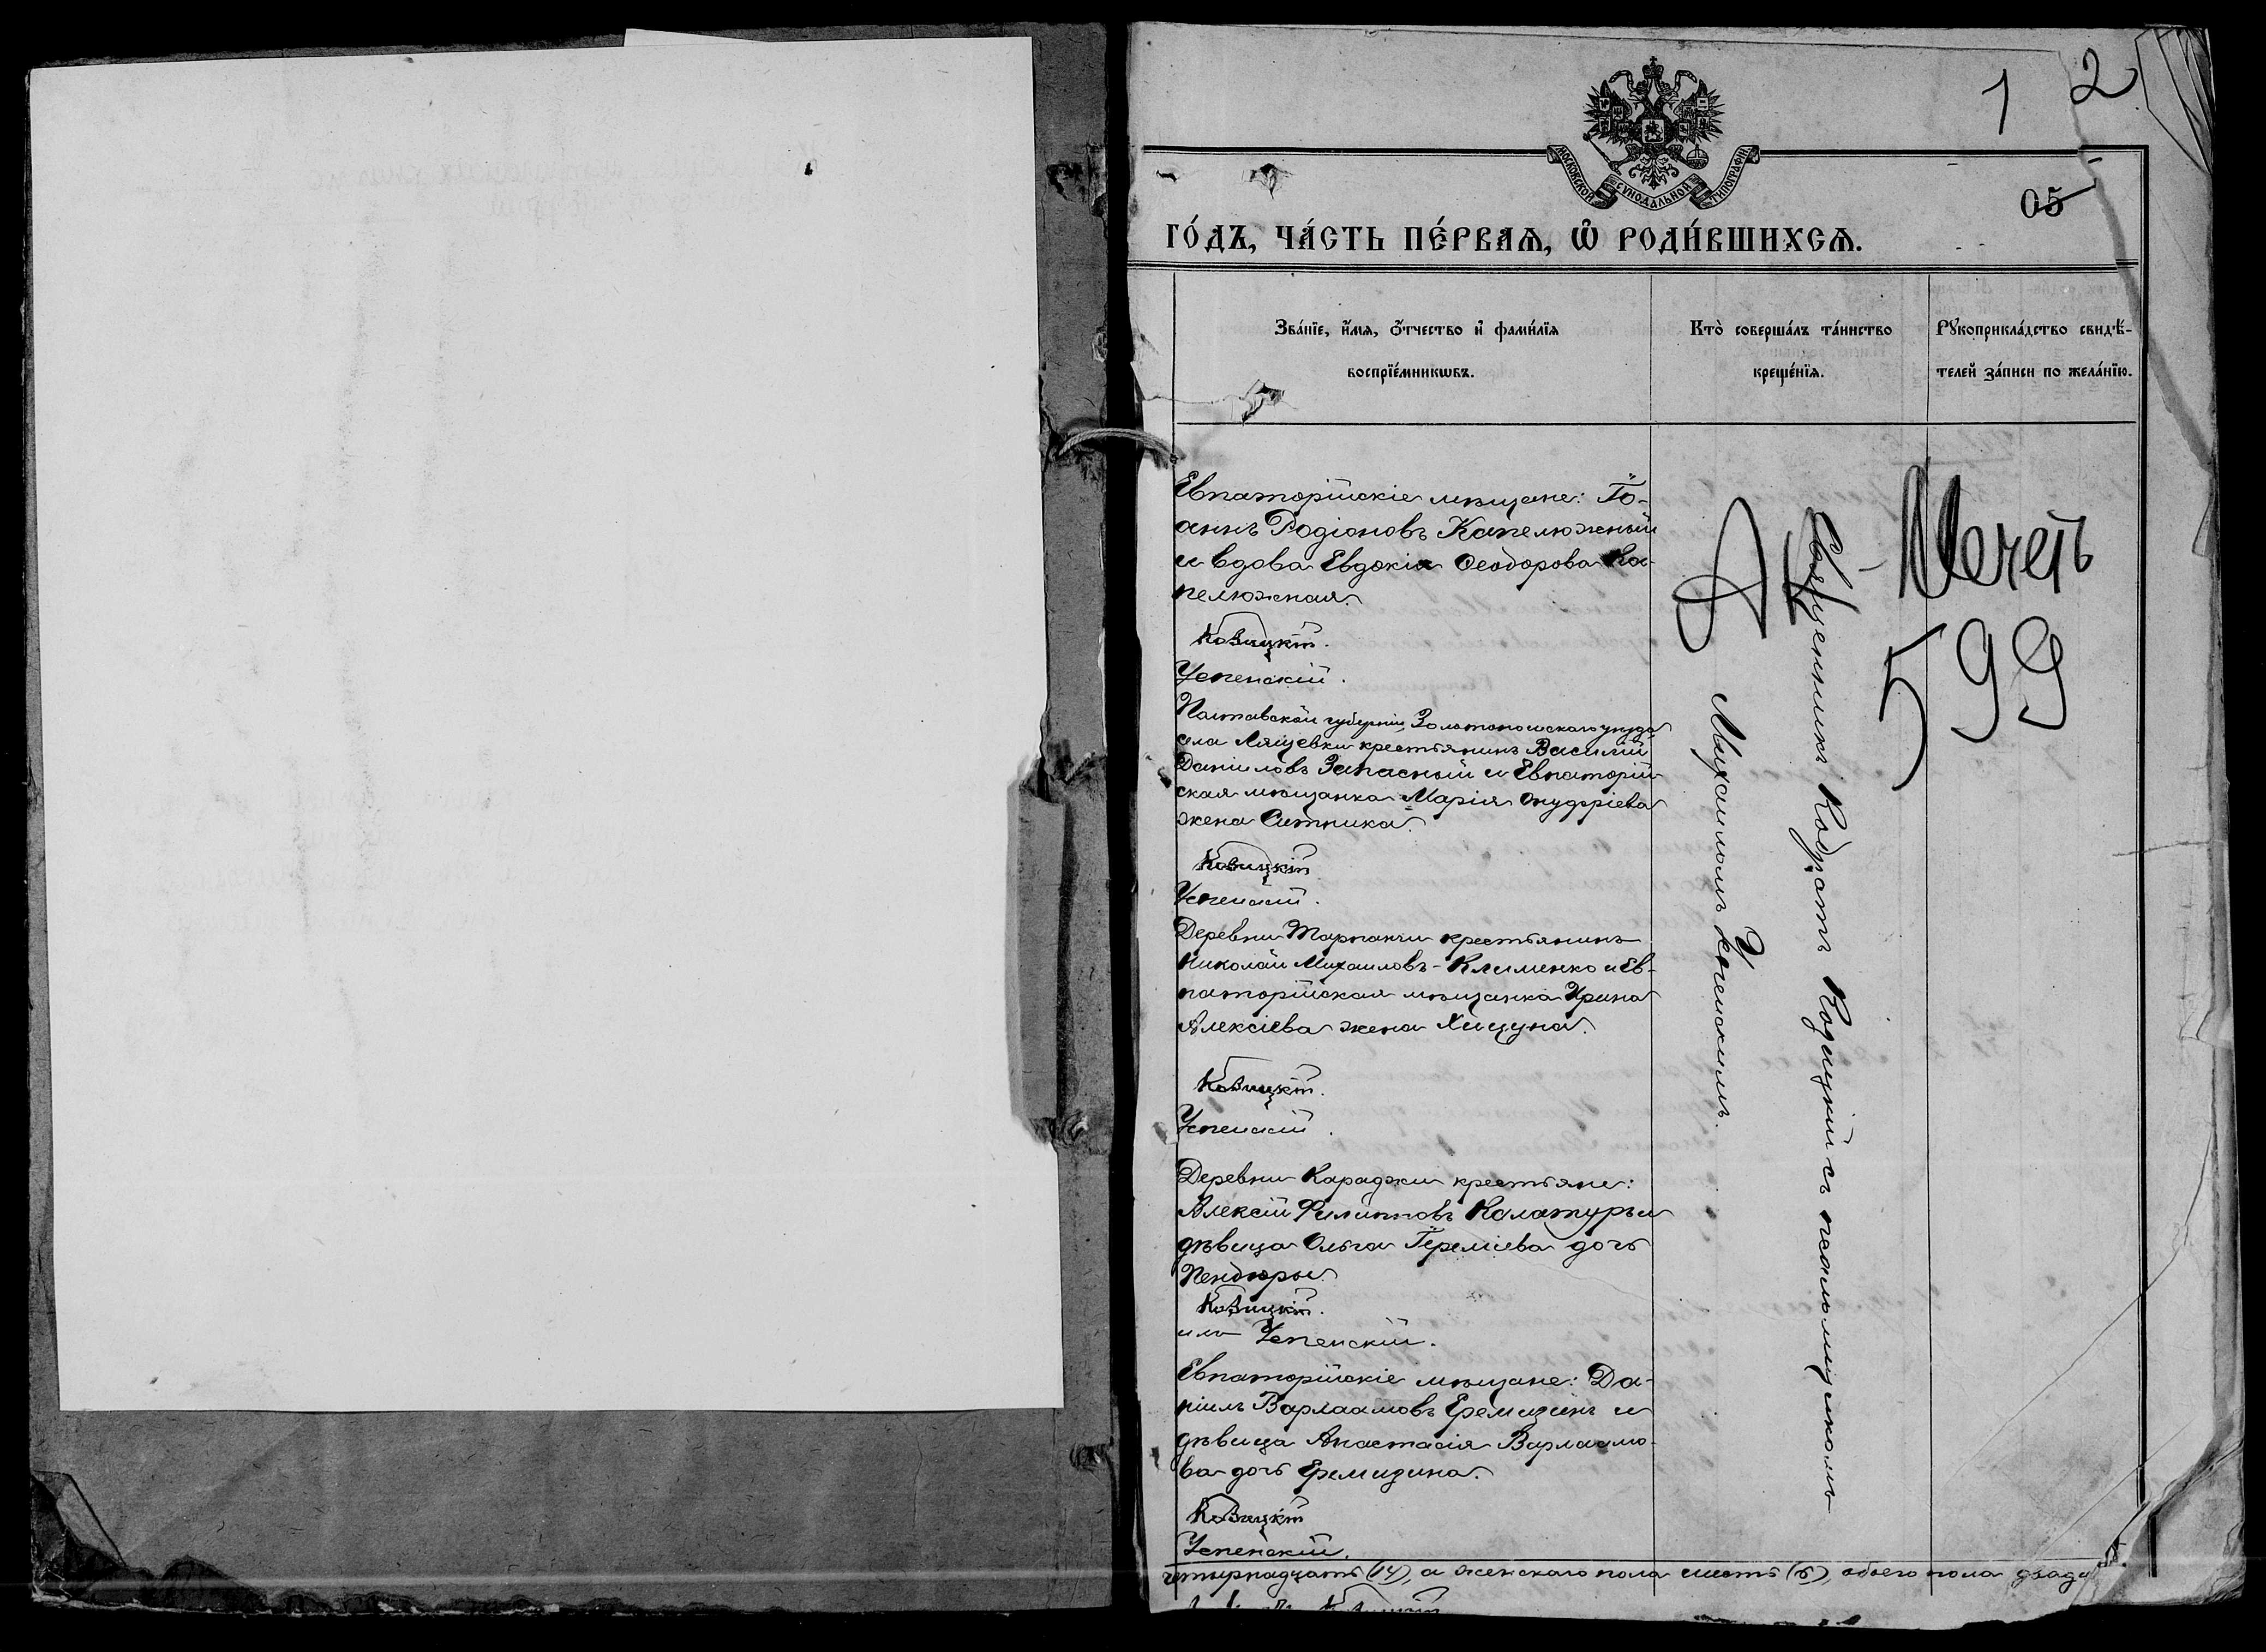 1 2
МОСКОВСКОЙ СУНОДАЛЬНОЙ ТИПОГРАФІИ
05
ГО́ДЪ, ЧА́СТЬ ПЕ́РВАЯ, Ѽ РОДИ́ВШИХСЯ.
Зва́нїе, и҆́мя, ѻ҆́тчество и҆ фами́лїя
воспрїе́мникѡвъ.
Кто̀ соверша́лъ та́инство
креще́нїя.
Рꙋкоприкла́дство свидѣ́-
телей за́писи по жела́нїю.
Евпаторійскіе мѣщане: Іо-
аннъ Родіоновъ Капелюжный
и вдова Евдокія Ѳеодорова Ка-
пелюжная.
Кобицкій.
Успенскій.
Полтавской губерніи, Золотоношскаго уѣзда
села Лящевки крестьянинъ Василій
Даніиловъ Запасный и Евпаторій-
ская мѣщанка Марія Онуфріева
жена Ситника.
Успенскій.
Деревни Тарпанчи крестьянинъ
Николай Михаиловъ Клименко и Ев-
паторійская мѣщанка Ирина
Алексіева жена
Успенскій.
Деревни Караджи крестьяне:
Алексій Филипповъ Калатуръ и
дѣвица Ольга Іереміева дочь
Пендюры.
Успенскій.
Евпаторійскіе мѣщане: Да-
ніилъ Варлаамовъ Еремизинъ и
дѣвица Анастасія Варлаамо-
ва дочь Еремизина.
Успенскій.
Священникъ Кодратъ съ псаломщикомъ
Михаиломъ Успенскимъ.
599
четырнадцать (14), а женскаго пола шесть (6), обоего пола двадц